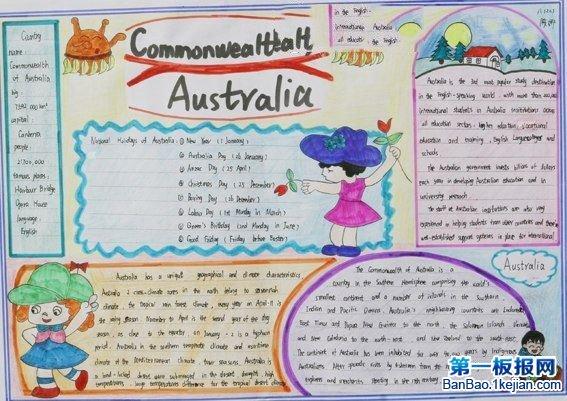 Country
name:
Commonwealth
of Australia
by:
capital:
Canberra
people:
famous places:
Harbour Bridge
Opera House
language:
English
Commonwealthtalt
Australia
in the English-
International
all education
the English-
National Holidays of Australia: ① New Year (1 January)
② Australia Day (26 January)
③ Anzac Day (25 April)
④ Christmas Day (25 December)
⑤ Boxing Day (26 December)
⑥ Labor Day (1st Monday in March)
⑦ Queen's Birthday (2nd Monday in June)
⑧ Good Friday (Friday before Easter)
Australia is the 3rd most popular study destination
in the English-speaking world, with more than
international students in Australia institutions across
all education sectors: higher education, vocational
education and training, English Language and
schools.
The Australian government invests billions of dollars
each year in developing Australian education and in
university research.
The staff at Australian institutions are also very
experienced in helping students from other countries and there
well-established support systems in place for international
Australia
Australia has a unique geographical and climate characteristics
Australia 2 climate zones in the north belong to savannah
climate, the tropical rain forest climate, every year on April-11 is
the rainy season. November to April is the
season, as close to the country on January-2 is a typhoon
period. Australia in the southern temperate climate and maritime
climate of the Mediterranean climate, four seasons. Australia is
a land-locked desert were submerged in the desert drought, high
temperatures, large temperatures difference for the tropical desert climate
The Commonwealth of Australia is a
country in the Southern Hemisphere comprising the world's
smallest continent and a number of islands in the Southern
Indian and Pacific Oceans. Australia's neighbouring countries are Indonesia,
East Timor and Papua New Guinea to the north, the Solomon Islands
and New Caledonia to the north-east and New Zealand to the south-east.
The continent of Australia has been inhabited for over years by Indigenous
Australians. After sporadic visits by fishermen from the
explorers and merchants starting in the 17th century
第一板报网
BanBao.1kejian.com